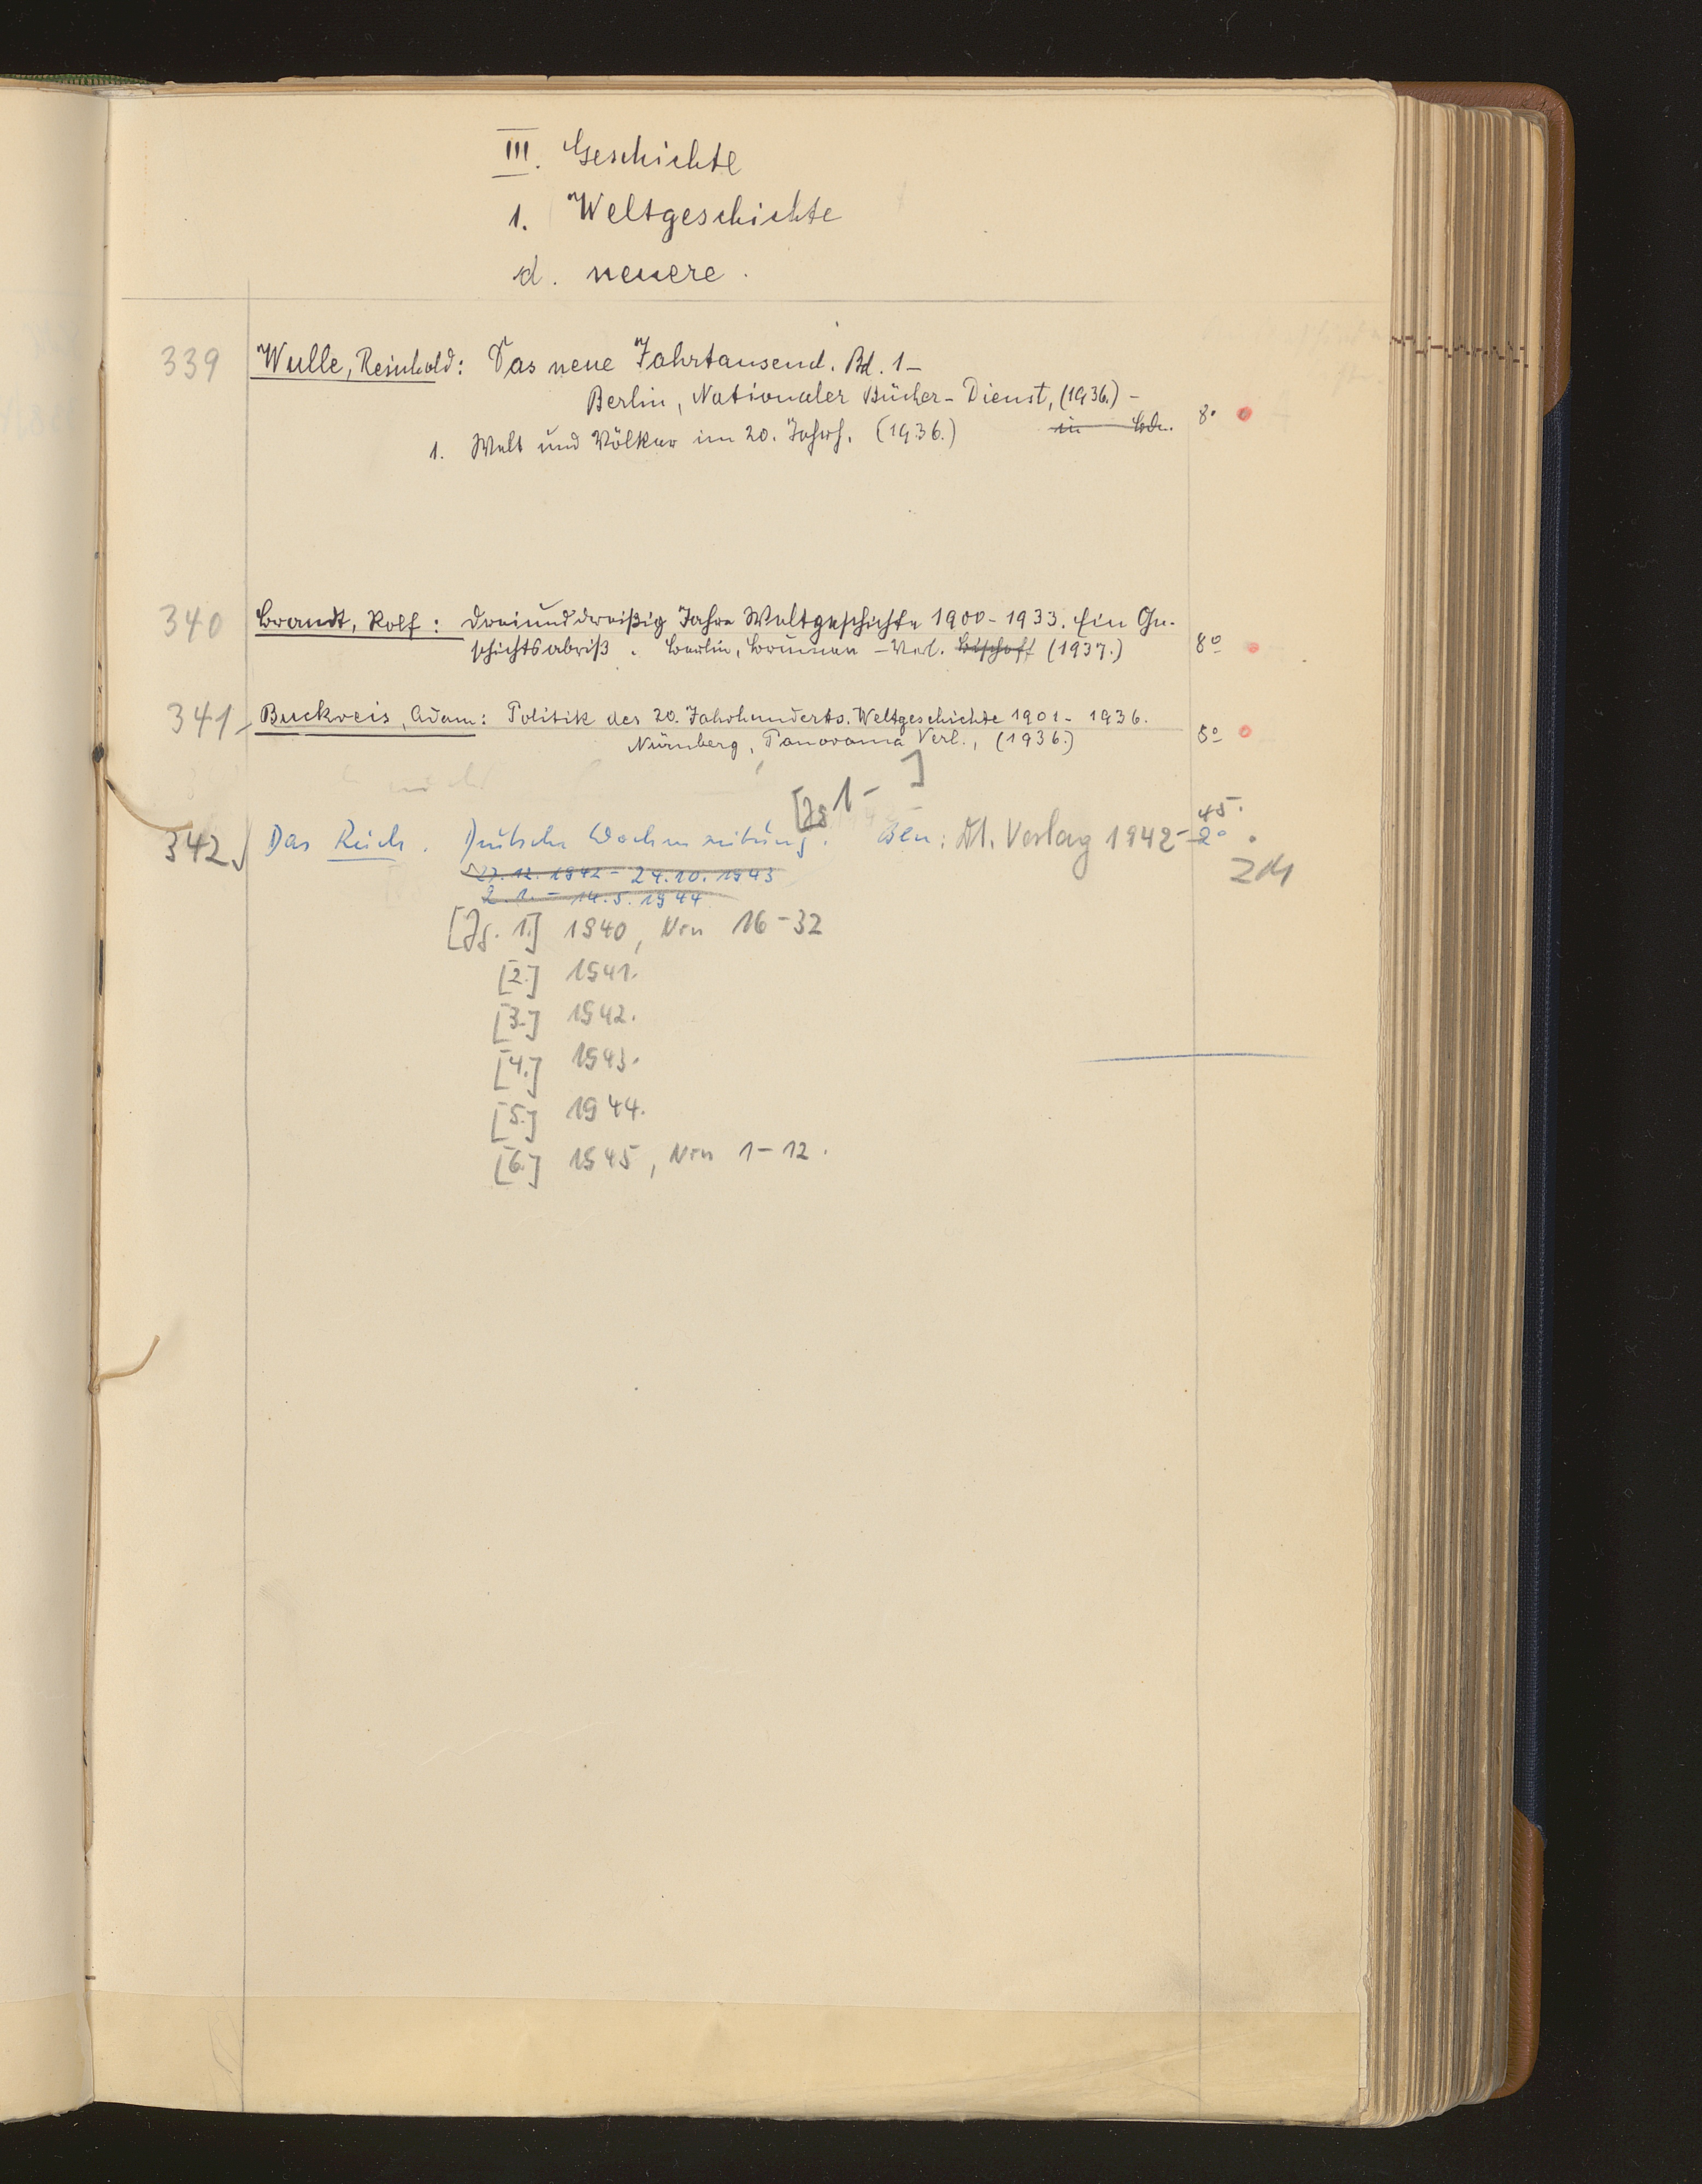 III. Geschichte
1. Weltgeschichte
d. neuere.
339 Wulle, Reinhold: Das neue Jahrtausend. Bd. 1–
Berlin, Nationaler Bücher-Dienst, (1936.) –
in Bdn. 8°
1. Welt und Völker im 20. Jahrh. (1936.)
340 Brandt, Rolf: Dreiunddreißig Jahre Weltgeschichte 1900–1933. Ein Ge-
schichtsabriß. Berlin, Brunnen-Verl. Bischoff (1937.) 8°
341 Buckreis, Adam: Politik des 20. Jahrhunderts. Weltgeschichte 1901–1936.
Nürnberg, Panorama Verl., (1936.) 8°
[Jg 1 – ]
45.
342 Das Reich. Deutsche Wochenzeitung. Bln: Dt. Verlag 1942– 2°
27.12.1942 – 24.10.1943
2.1. – 14.5.1944
[Jg. 1.] 1940, Nrn 16–32
[2.] 1941.
[3.] 1942.
[4.] 1943.
[5.] 1944.
[6.] 1945, Nrn 1–12.